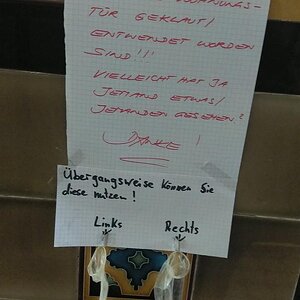 WOHNUNGS-
TÜR GEKLAUT/
ENTWENDET WORDEN
SIND!!!
VIELLEICHT HAT JA
JEMAND ETWAS/
JEMANDEN GESEHEN?
DANKE!
Übergangsweise können Sie
diese nutzen!
Links Rechts